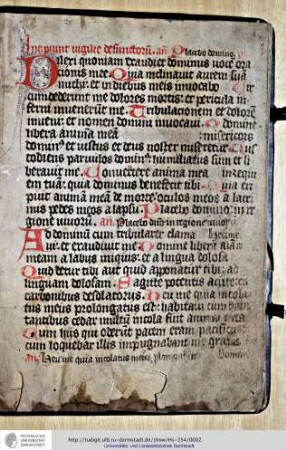 Incipiunt vigilie defunctorum. an. Placebo domino.
Dilexi quoniam exaudiet dominus vocē ora
cionis mee. Quia inclinavit aurem suā
michi: et in diebus meis invocabo. Cir
cumdederunt me dolores mortis: et pericula in
ferni invenerunt me. Tribulacionem et dolorē
inveni: et nomen domini invocavi. O domine
libera animā meā misericors
dominꝰ et iustus et deus noster miseretur. Cus
todiens parvulos dominꝰ: humiliatus sum et li
beravit me. Convertere anima mea in requi
em tuā: quia dominus benefecit tibi. Quia eri
puit animā meā de morte: oculos meos a lacri
mis pedes meos a lapsu. Placebo domino: in re
gione vivorū. an.
Ad dominū cum tribularer clama
vi: et exaudivit me. Domine libera aīam
meam a labiis iniquis: et a lingua dolosa.
Quid detur tibi aut quid apponatur tibi: ad
linguam dolosam. Sagitte potentis acute: cū
carbonibus desolatoriis. Heu me quia incola
tus meus prolongatus est: habitavi cum habi
tantibus cedar: multū incola fuit anima mea.
Cum hiis qui oderunt pacem eram pacificus:
cum loquebar illis impugnabant me gratis.
an. Heu me quia incolatus meus
TECHNISCHE
UNIVERSITÄT
DARMSTADT
http://tudigit.ulb.tu-darmstadt.de/show/Hs-154/0002
Universitäts- und Landesbibliothek Darmstadt